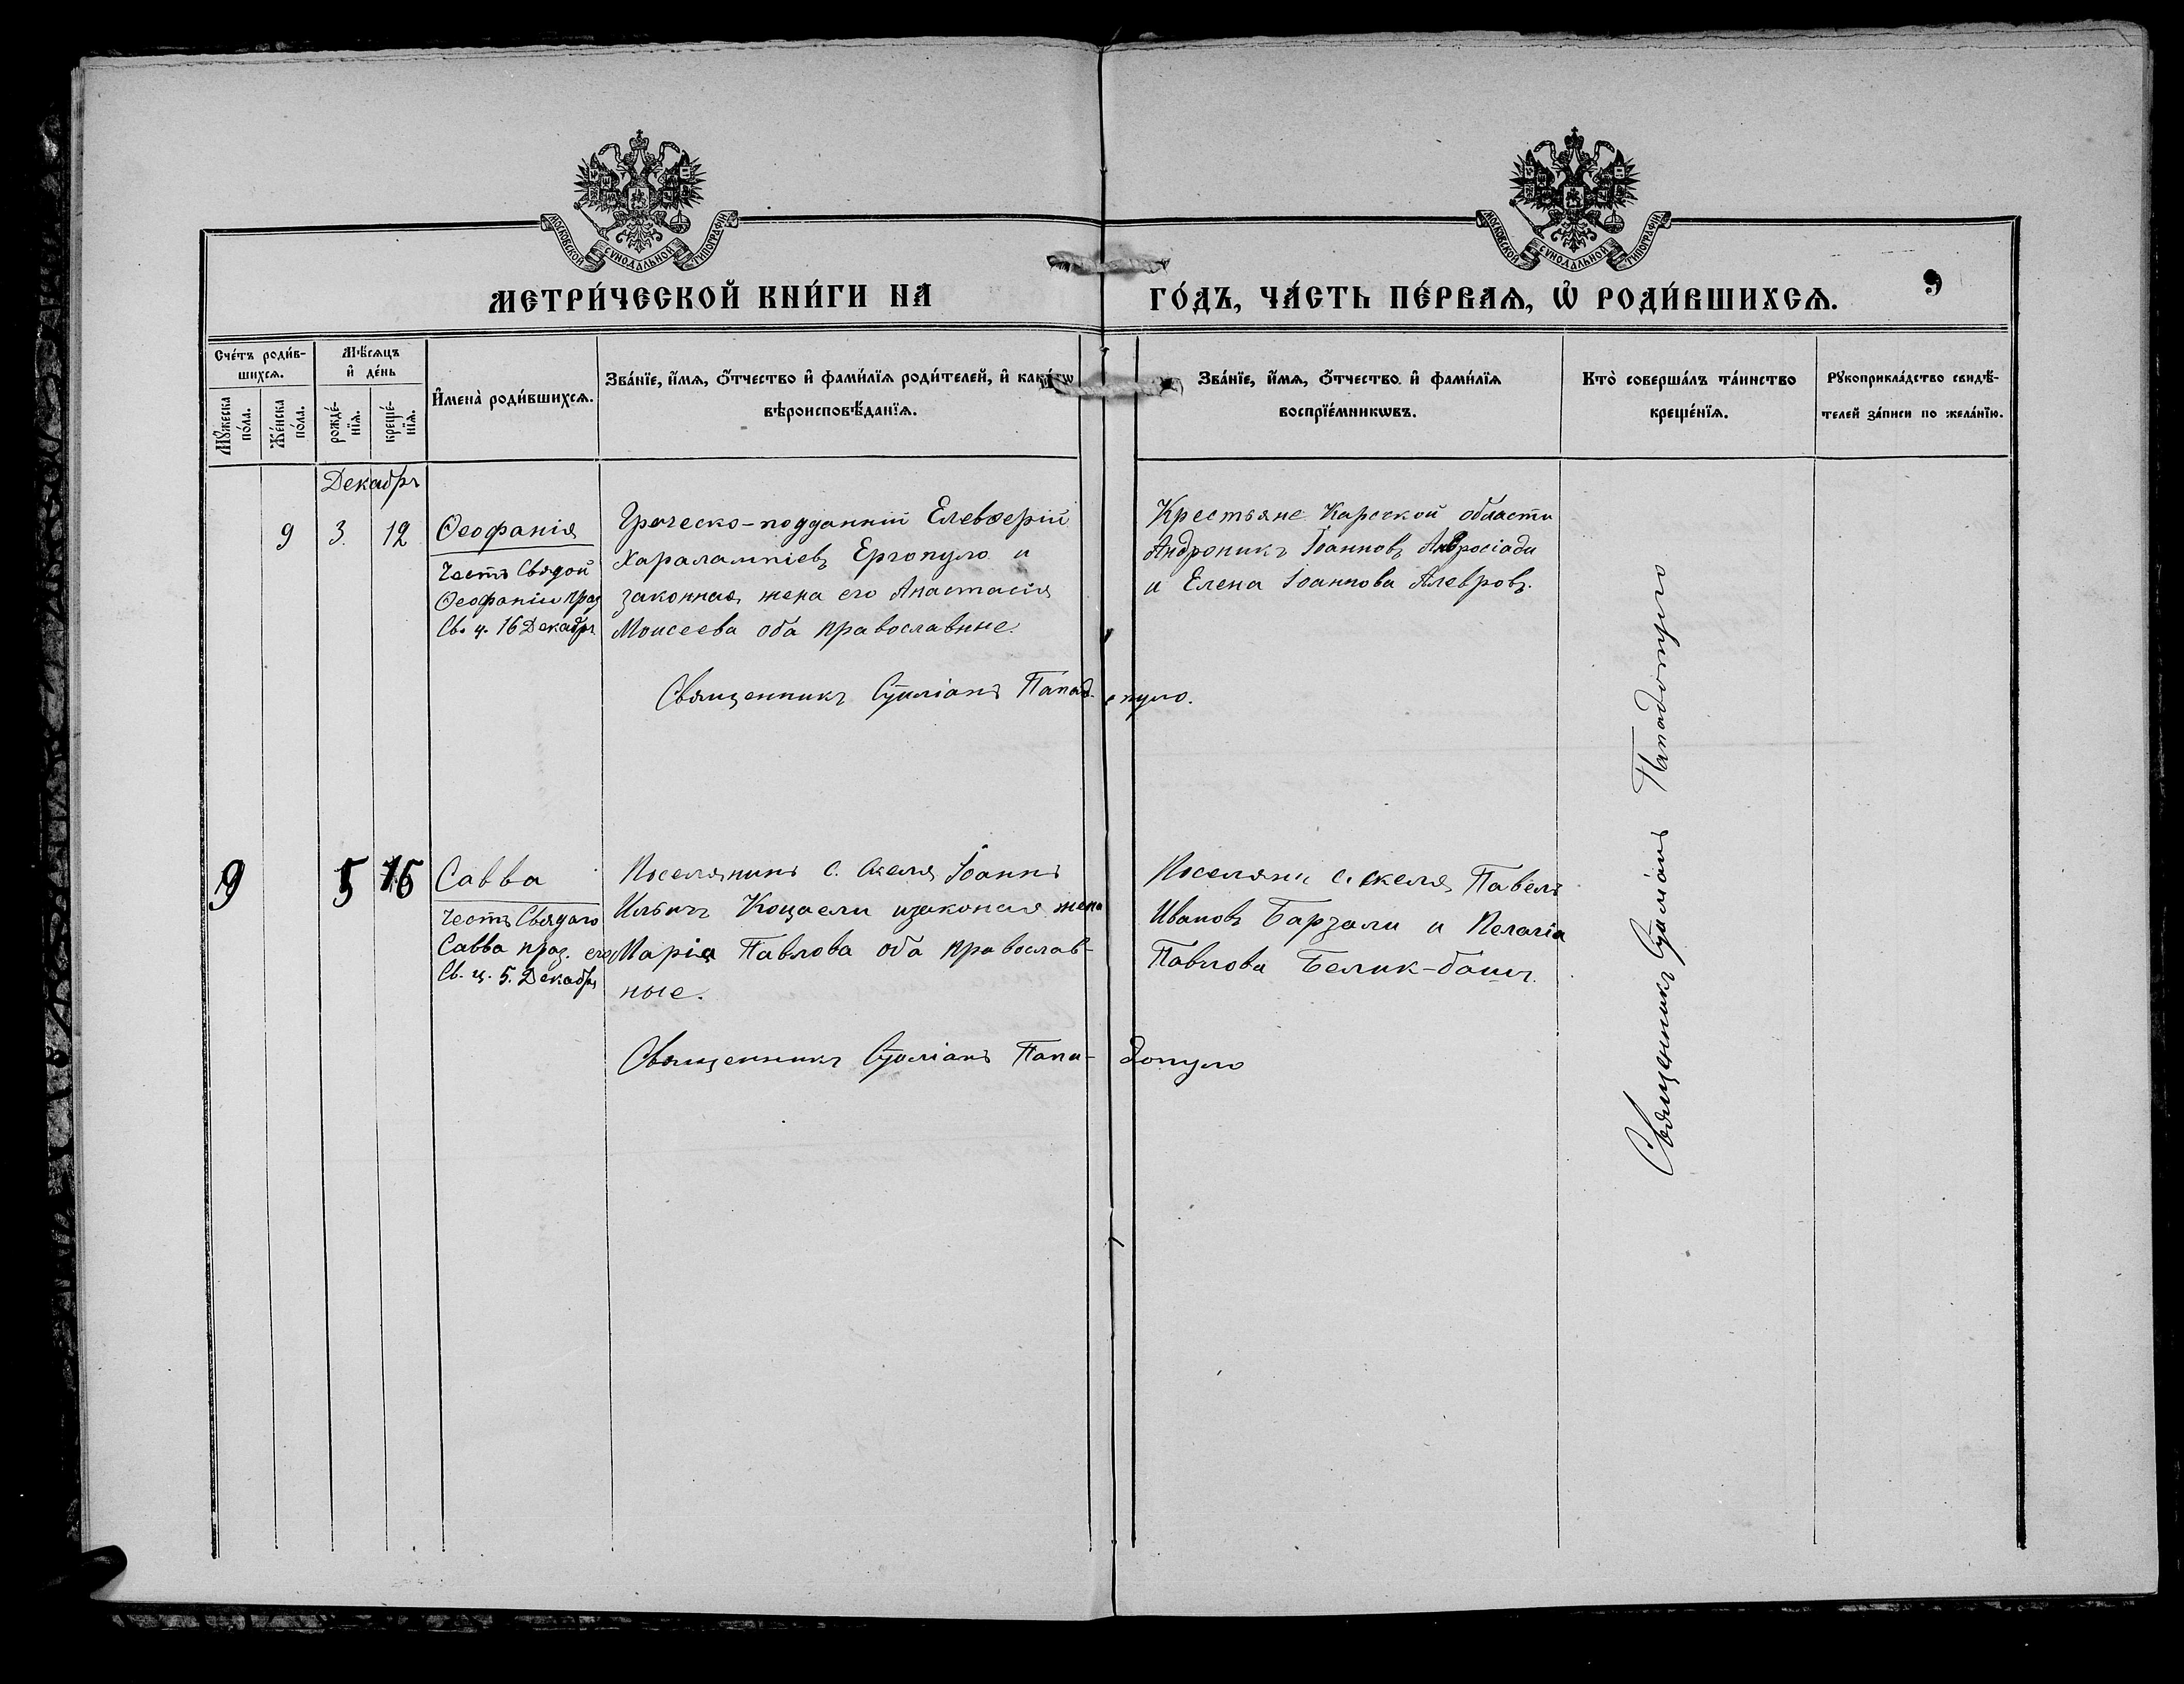 МОСКОВСКОЙ СУНОДАЛЬНОЙ ТИПОГРАФІИ
МОСКОВСКОЙ СУНОДАЛЬНОЙ ТИПОГРАФІИ
МЕТРИ́ЧЕСКОЙ КНИ́ГИ НА
ГО́ДЪ, ЧА́СТЬ ПЕ́РВАѦ, Ѡ҆ РОДИ́ВШИХСѦ.
9
Сче́тъ роди́в-
шихсѧ.
Мꙋ́жеска
по́ла.
Же́нска
по́ла.
Мѣ́сѧцъ
и҆ де́нь
рожде́-
нїѧ.
креще́-
нїѧ.
И҆мена̀ роди́вшихсѧ.
Зва́нїе, и҆́мѧ, ѻ҆́тчество и҆ фами́лїѧ роди́телей, и҆ како́гѡ
вѣроисповѣ́данїѧ.
Зва́нїе, и҆́мѧ, ѻ҆́тчество и҆ фами́лїѧ
воспрїе́мникѡвъ.
Кто̀ соверша́лъ та́инство
креще́нїѧ.
Рꙋкоприкла́дство свидѣ́-
телей за́писи по жела́нїю.
Декабрь
9 3. 12
Ѳеофанія
Честь Святой
Ѳеофаніи праз
Св. ц. 16 Декабрь
Греческо-подданній Елевѳерій
Харалампіевъ Ергопуло и
законная жена его Анастасія
Моисеева оба православные.
Священникъ Стиліанъ Папад-
опуло.
Крестьяне Карской области
Андроникъ Іоанновъ
и Елена Іоаннова Алевровъ.
9 5 16
Савва
Честь Святаго
Савва праз. его
Св. ц. 5. Декабрь
Поселянинъ с. Скеля Іоаннъ
Ильичъ Коцаели изаконая жена
Марія Павлова оба православ-
ные.
Священникъ Стиліанъ Папа-
допуло
Поселяни с. скеля Павелъ
Ивановъ Барзали и Пелагіа
Павлова Белик-башъ.
Священникъ Стиліанъ Пападопуло